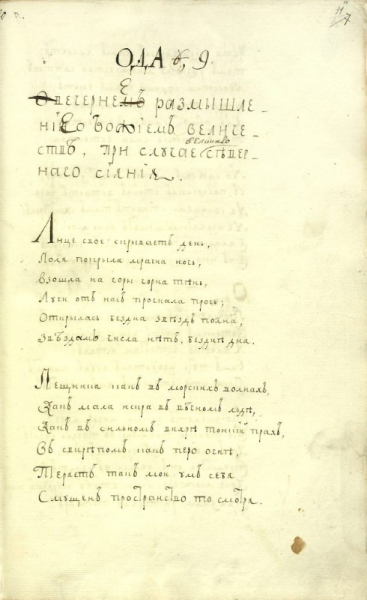 7
ОДА 9.
вечернеЕ размышле-
ніЕ о божіемъ величе-
великаго
ствѣ, при случае сѣвер-
наго сіянія.
Лице свое скрываетъ день,
Поля покрыла мрачна ночь,
Взошла на горы чорна тѣнь,
Лучи отъ насъ прогнала прочь;
Открылась бездна звѣздъ полна,
Звѣздамъ числа нѣтъ, безднѣ дна.
Песчинка какъ въ морскихъ волнахъ,
Какъ мала искра въ вѣчномъ льдѣ,
Какъ въ сильномъ вихрѣ тонкій прахъ,
Въ свирѣпомъ какъ перо огнѣ,
Теряетъ такъ мой умъ себя
Смущенъ пространство то смотря.